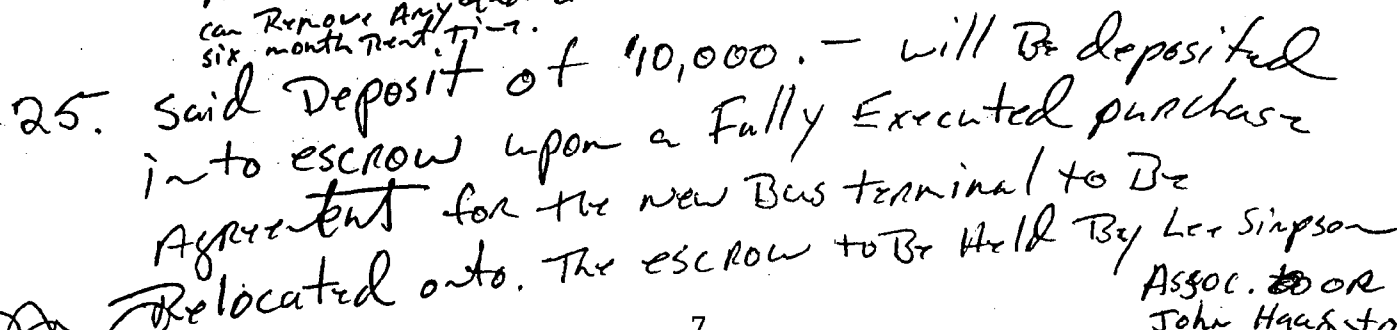 can Remove Any
six month Rent. Time.
25. Said Deposit of $10,000.- will Be deposited
into escrow upon a Fully Executed purchase
Agreement for the new Bus terminal to Be
Relocated onto. The escrow to Be Held By Lee Simpson
Assoc. OR
7
John